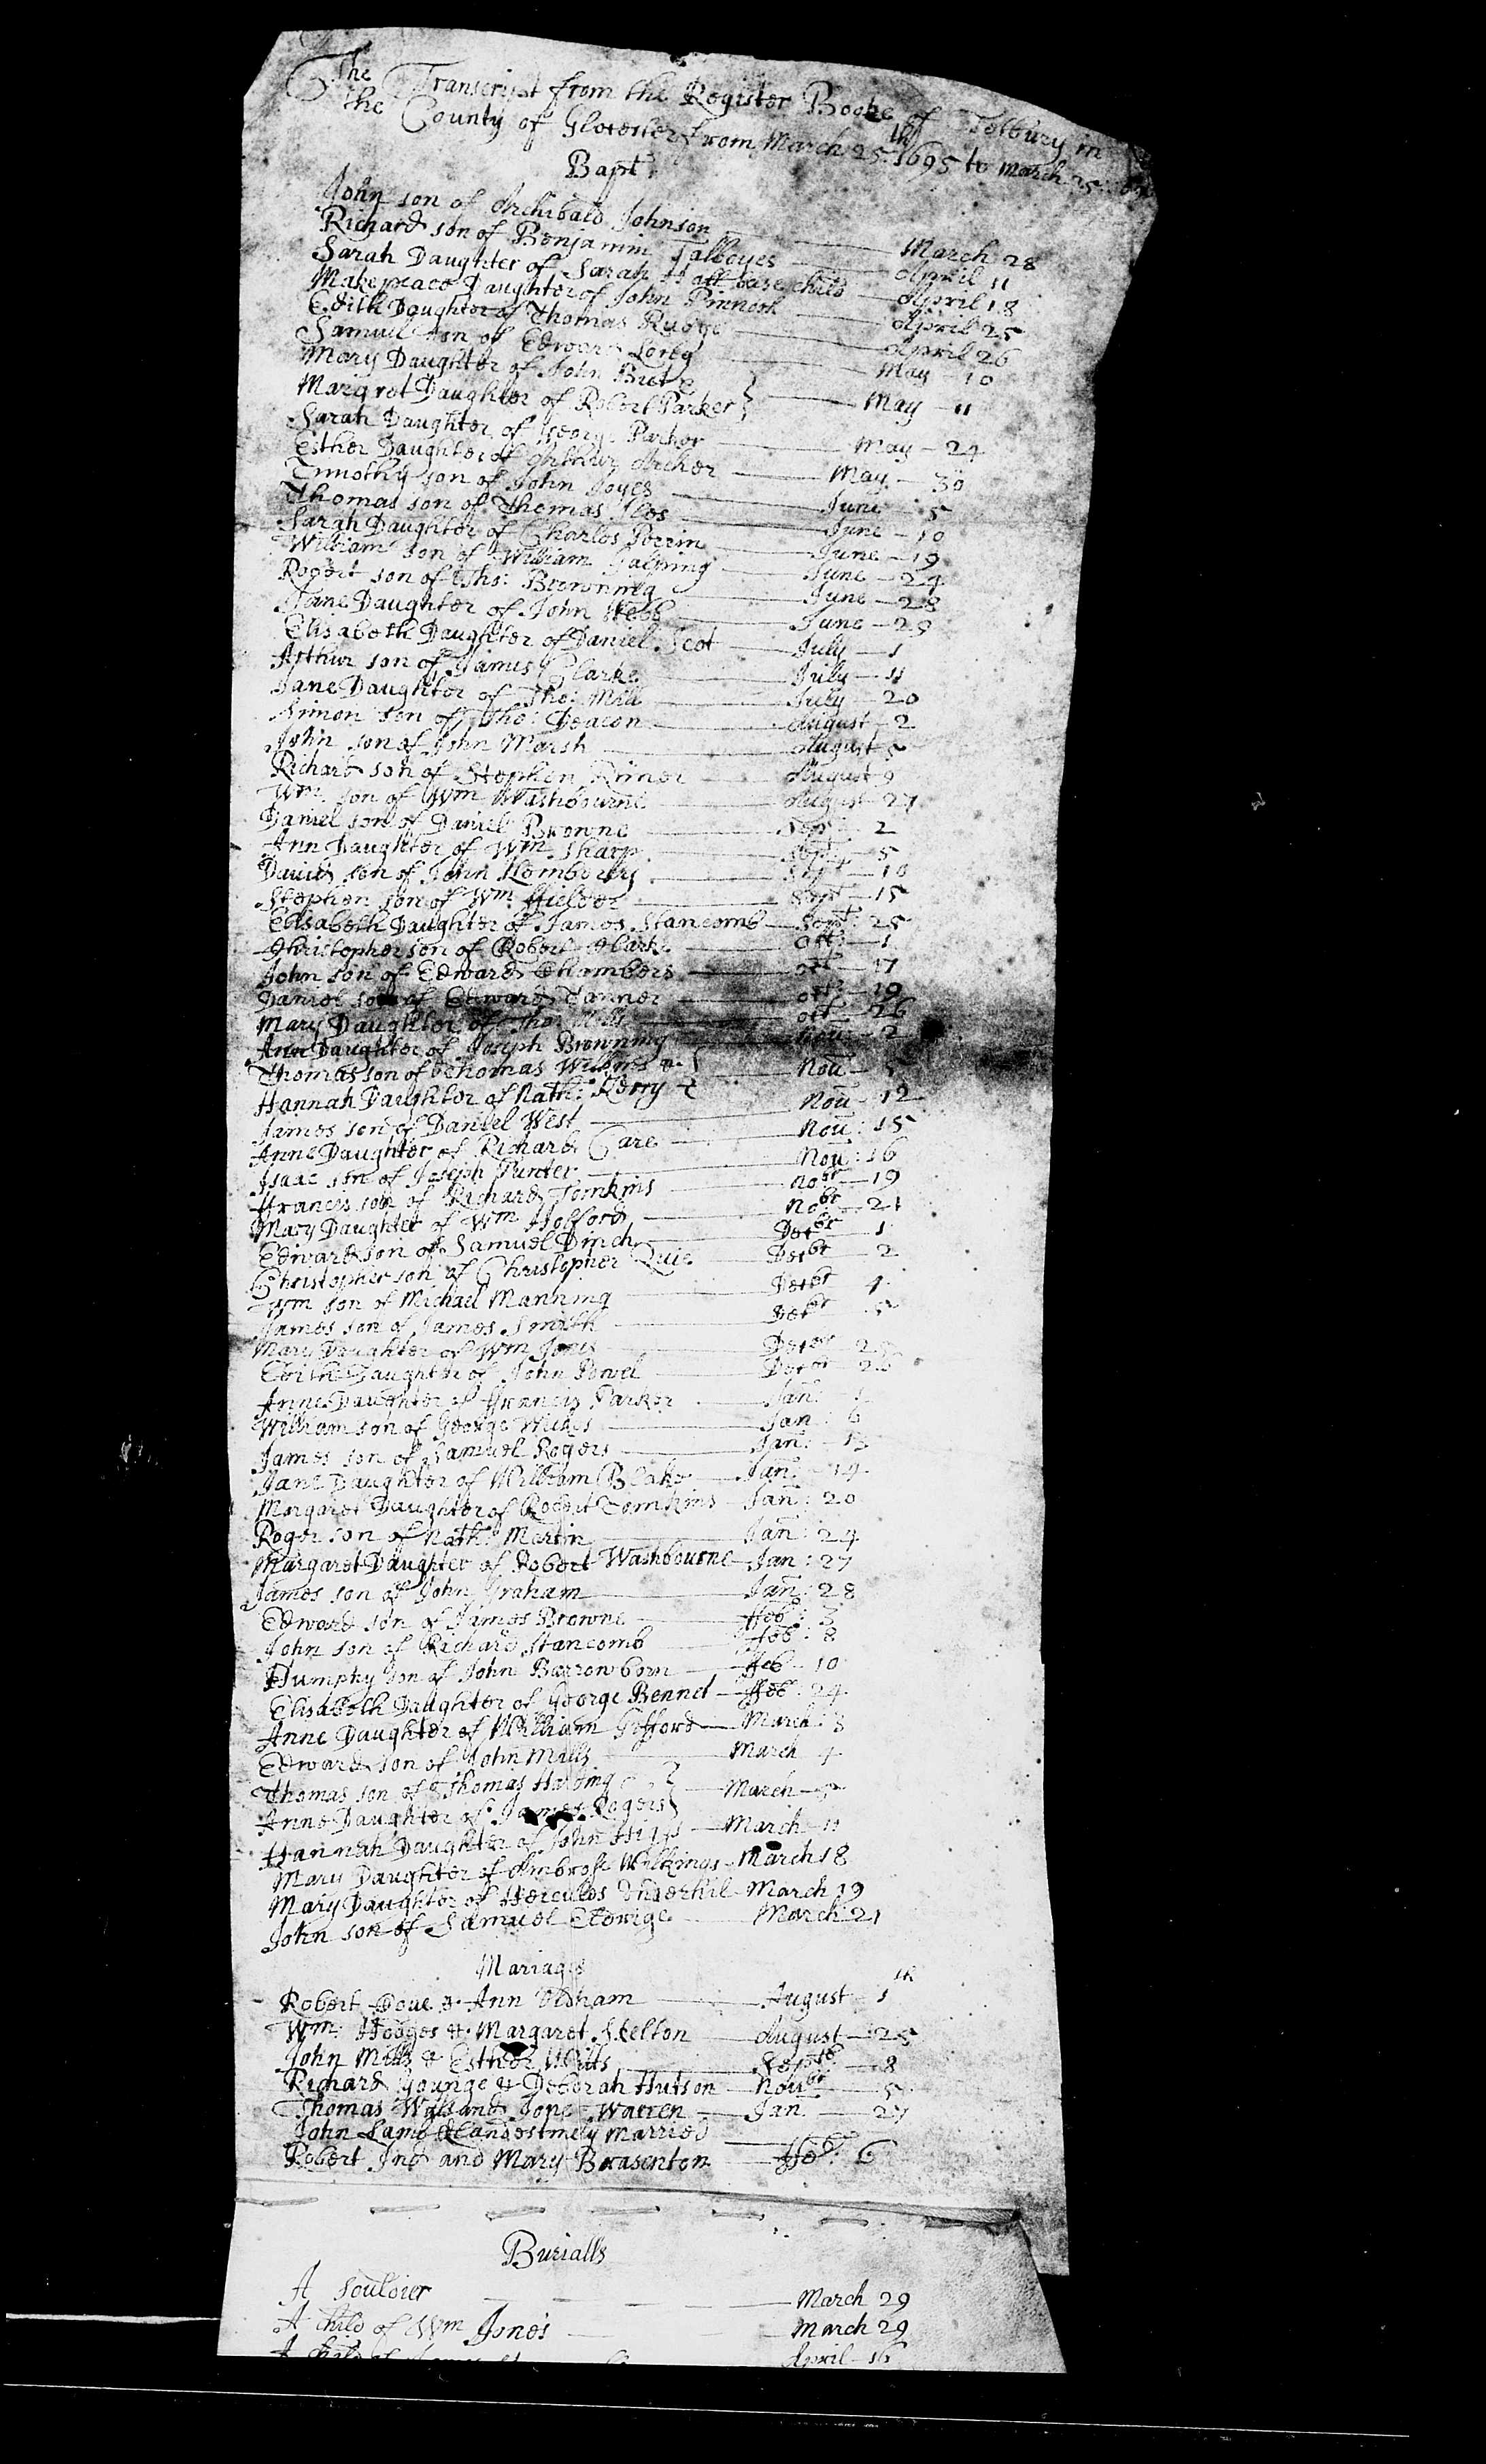 The Transcript from the Register Booke of Tetbury in
the County of Glocester from March 25th 1695 to March 25:
Bapt:
John son of Archibald Johnson March 28
Richard son of Benjamin Talboyes April 11
Sarah Daughter of Sarah base child April 18
Makepeace Daughter of John Pinnock April 25
Edith Daughter of Thomas Rudge April 26
Samuel son of Edward May 10
Mary Daughter of John &
Margret Daughter of Robert Parker } May 11
Sarah Daughter of Georg Parker May 24
Esther Daughter of Arthur Archer May 30
Timothy son of John Joyes June 5
Thomas son of Thomas Iles June 10
Sarah Daughter of Charles Perrin June 19
William son of William Galping June 24
Robert son of Tho: Browning June 28
Jane Daughter of John Webb June 29
Elisabeth Daughter of Daniel Scot July 1
Arthur son of James Clarke July 11
Jane Daughter of Tho: Mill July 20
Simon son of Tho: Deacon August 2
John son of John Marsh August 5
Richard son of Stephen Rimer August 9
Wm son of Wm Washbourne August 27
Daniel son of Daniel Browne Sept 2
Ann Daughter of Wm Sharp Sept 5
David son of John Sept 10
Stephen son of Wm ffielder Sept 15
Elisabeth Daughter of James Stancomb Sept 25
Christopher son of Robert Clark Oct: 1
John son of Edward Chambers Oct 17
Daniel son of Edward Tanner Oct: 19
Mary Daughter of Tho: Mills Oct 26
Ann Daughter of Joseph Browning Nou 2
Thomas son of Thomas &
Hannah Daughter of Nath: Kerry } Nou 5
James son of Daniel West Nou 12
Anne Daughter of Richard Care Nou: 15
Isaac son of Joseph Punter Nou: 16
ffrancis son of Richard Tomkins Nobr 19
Mary Daughter of Wm Hofford Nobr 21
Edward son of Samuel Decbr 1
Christopher son of Christopher Quie Decbr 2
Wm son of Michael Manning Decbr 4
James son of James Smith Decbr 5
Mary Daughter of Wm Jones Decbr
Edith Daughter of John Powel Decbr 26
Anne Daughter of ffrancis Parker Jan:
William son of George Wickes Jan: 6
James son of Samuel Rogers Jan: 13
Jane Daughter of William Blake Jan: 14
Margaret Daughter of Robert Tomkins Jan: 20
Roger son of Nath: Martin Jan: 24
Margaret Daughter of Robert Washbourne Jan: 27
James son of John Graham Jan: 28
Edward son of James Browne ffeb: 3
John son of Richard Stancomb ffeb: 8
Humphy son of John Barrowborn ffeb 10
Elisabeth Daughter of George Bennet ffeb: 24
Anne Daughter of William Gifford March: 3
Edward son of John Mills March 4
Thomas son of Thomas Harding &
Anne Daughter of James Rogers } March 5
Hannah Daughter of John Higgs March 11
Mary Daughter of Ambrose Wilkings March 18
Mary Daughter of Hercules March 19
John son of Samuel Eldrige March: 21
Mariages
Robert Doue & Ann Oldham August 1th
Wm: Hodges & Margaret Skelton August 25
John Mills & Esther Sept 8
Richard Younge & Deborah Hutson Noubr 5
Thomas Wals and Jone Warren Jan 27
John Lamb Clandestinely Married
Robert Ind and Mary Brasenton ffeb: 6
Burialls
A Souldier March 29
A Child of Wm Jones March 29
A child of April 16